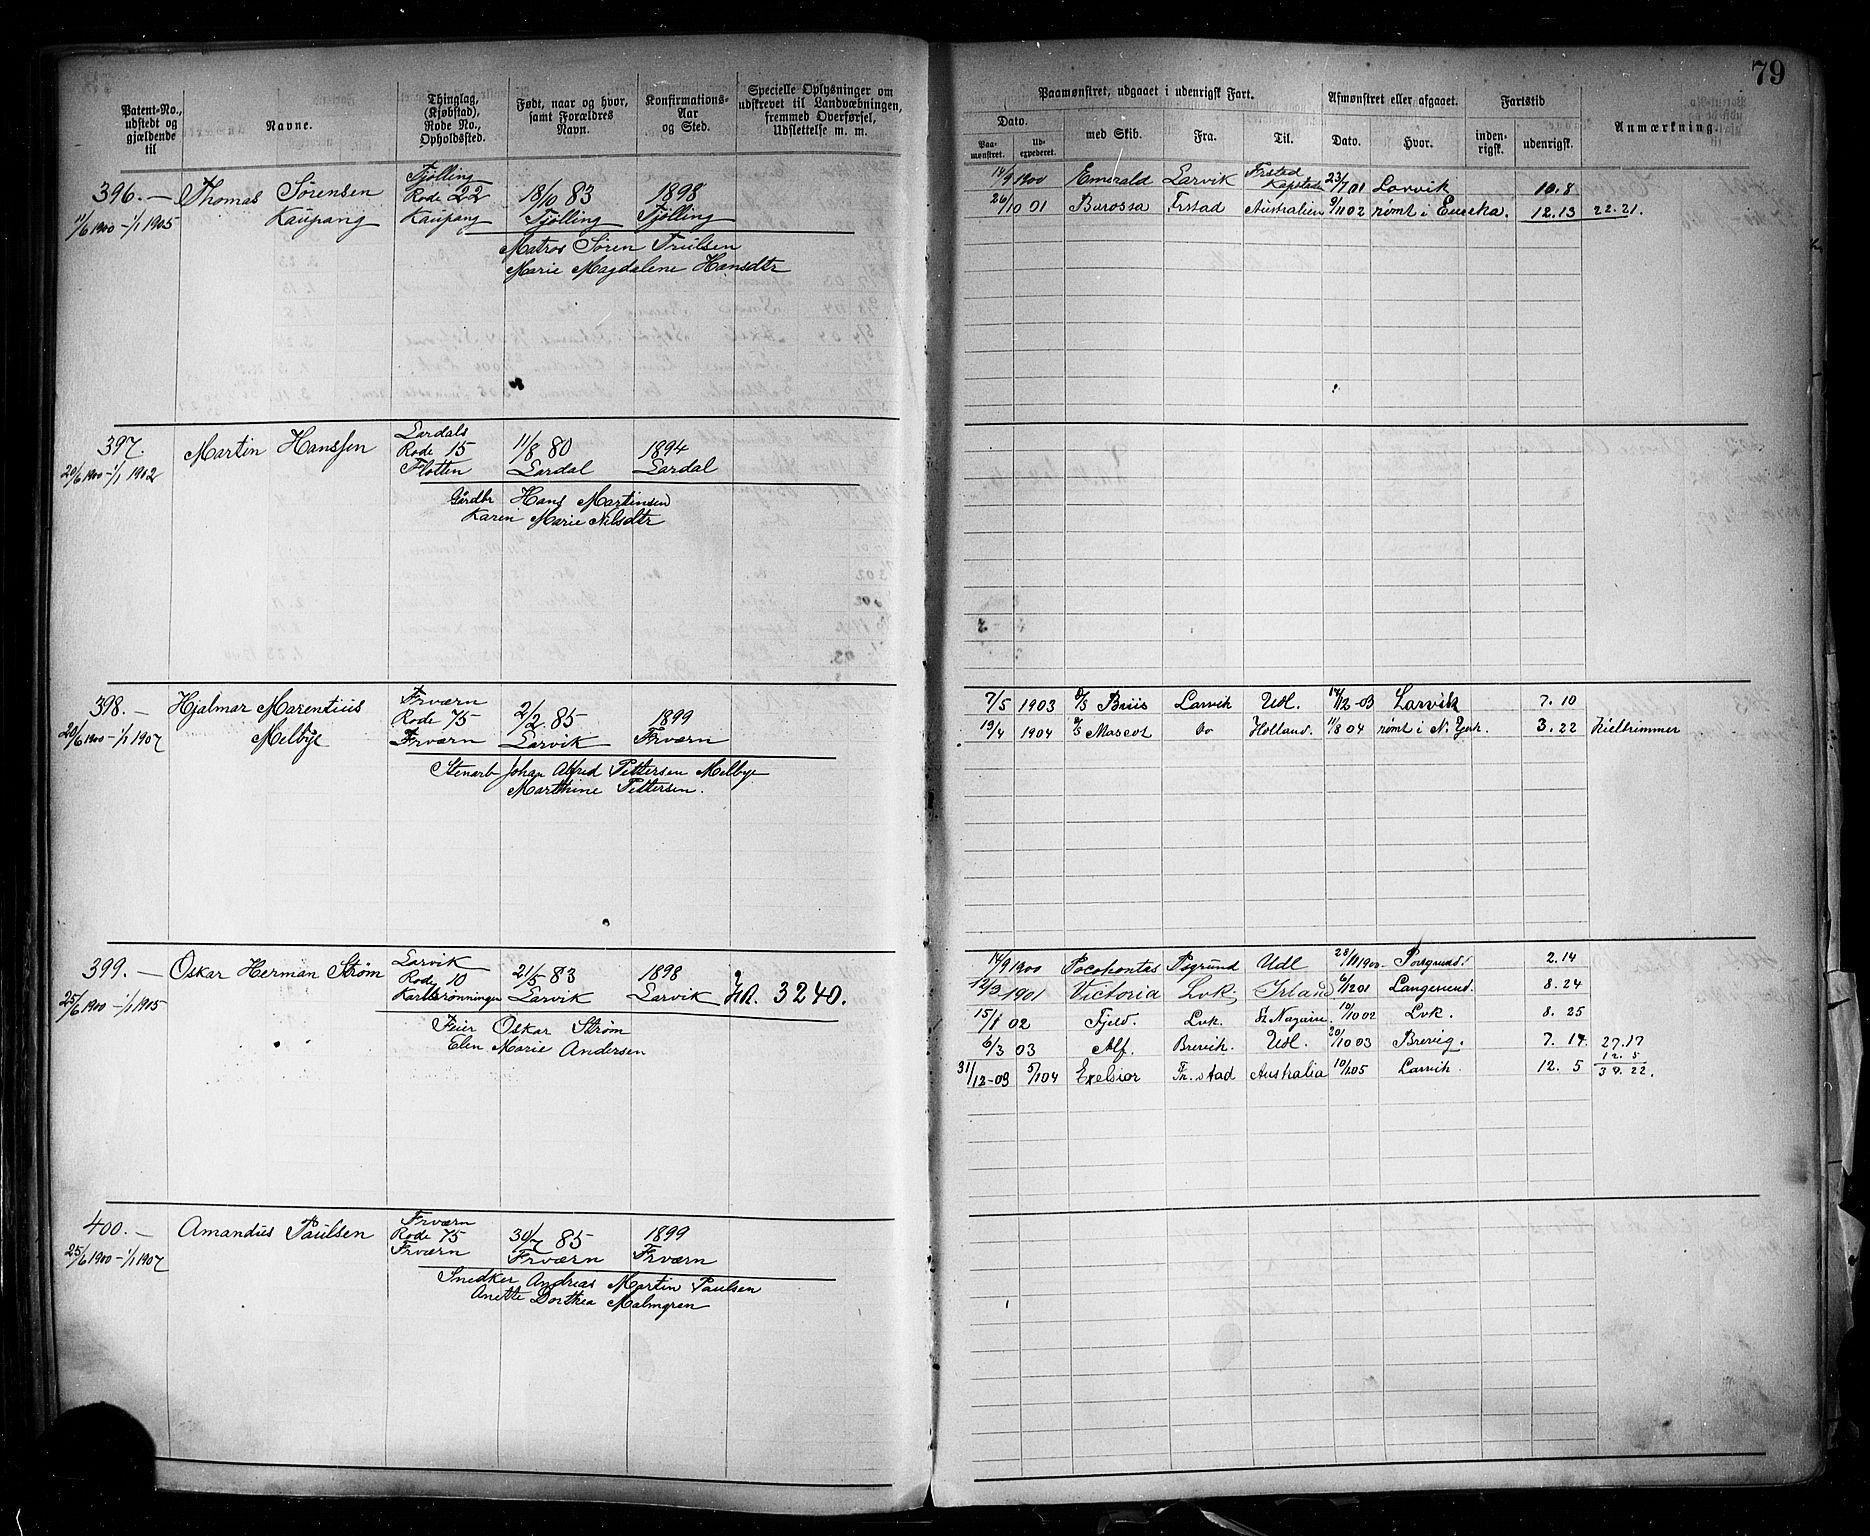 79
Patent-No., udstedt og gjældende til
Navne.
Thinglag, (Kjøbstad), Rode No., Opholdssted.
Født, naar og hvor, samt Forældres Navn.
Konfirmations-Aar og Sted.
Specielle Oplysninger om udskrevet til Landvæbningen, fremmed Overførsel, Udslettelse m. m.
Paamønstret, udgaaet i udenrigsk Fart.
Afmønstret eller afgaaet.
Fartstid
Anmærkning.
Dato.
Paamønstret.
Udexpederet.
med Skib.
Fra.
Til.
Dato.
Hvor.
indenrigsk.
udenrigsk.
396. — Thomas Sørensen Tjølling Rode 22 18/10 83 1898
11/6 1900 – 1/1 1905 Kaupang Kaupang Tjølling Tjølling
Matros Søren Trulsen
Marie Magdalene Hansdtr
14/9 1900 Emerald Larvik Frstad Kapstad 23/7 01 Larvik 10.8
26/10 01 Barossa Frstad Australien 9/11 02 rømt i Eureka. 12.13 22.21.
397. Martin Hanssen Lardals Rode 15 11/8 80 1894
20/6 1900 – 1/1 1902 Flotten Lardal Lardal
Gårdbr Hans Martinsen
Karen Marie Nilsdtr
398. — Hjalmar Marentius Frværn Rode 75 2/2 85 1899
20/6 1900 – 1/1 1907 Melbye Frværn Larvik Frværn
Stenarb Johan Alfred Pettersen Melbye
Marthine Pettersen.
7/5 1903 D/S Briis Larvik Udl. 17/12 03 Larvik 7. 10
19/4 1904 Mascot Do Holland. 11/8 04 rømt i N. York. 3. 22 Kultrimmer
399. — Oskar Herman Strøm Larvik Rode 10 21/5 83 1898
25/6 1900 – 1/1 1905 Larvik Larvik 3240.
Feier Oskar Strøm
Elen Marie Andersen
14/9 1900 Pocohontas Psgrund Udl 28/11 1900 Porsgrund. 2.14
12/3 1901 Victoria Lvk. Irland 6/12 01 Langesund. 8. 24
15/1 02 Fjeld. Lvk. St Nazaire. 10/10 02 Lvk. 8. 25
6/3 03 Alf. Brevik. Udl. 20/10 03 Brevig. 7. 14 27.17
12. 5
31/12-03 5/1 04 Exelsior Fr.stad Australia 10/1 05 Larvik. 12. 5 39. 22.
400. — Amandus Paulsen Frværn Rode 75 30/7 85 1899
25/6 1900 – 1/1 1907 Frværn Frværn Frværn
Snedker Andreas Martin Paulsen
Anette Dorthea Malmgren